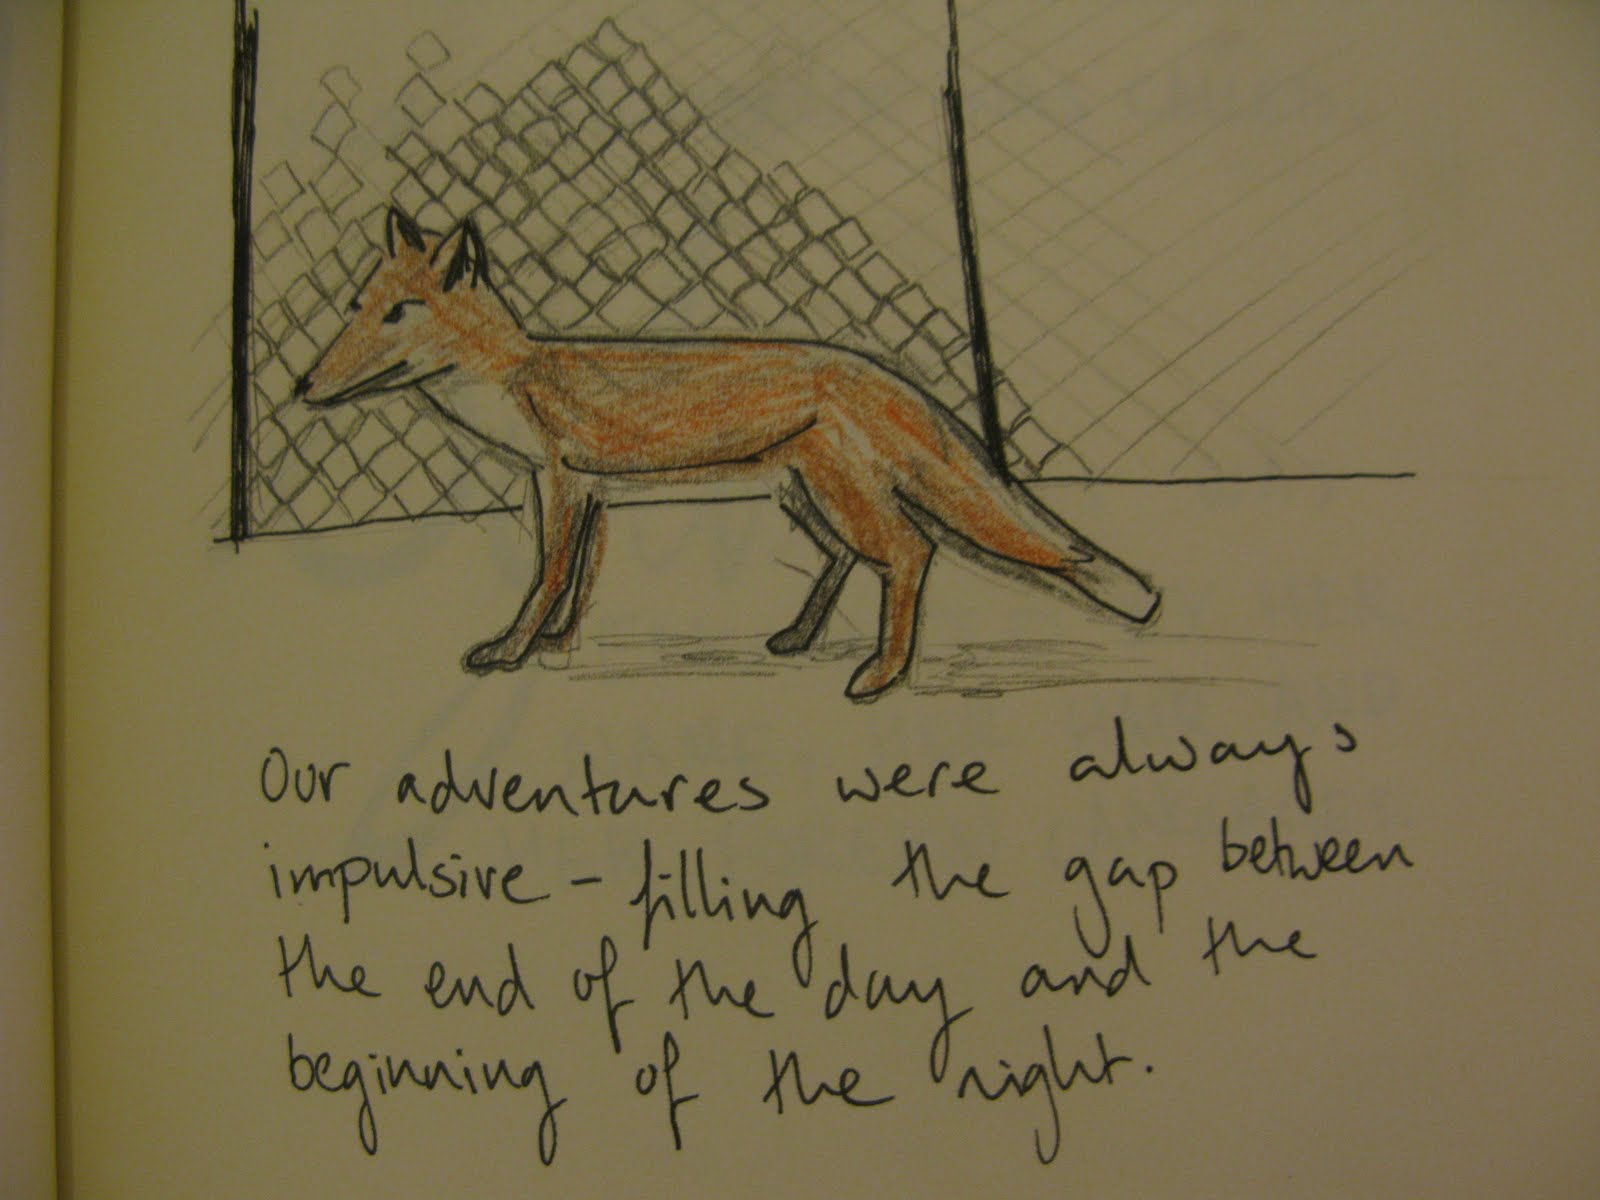 Our adventures were always
impulsive - filling the gap between
the end of the day and the
beginning of the night.